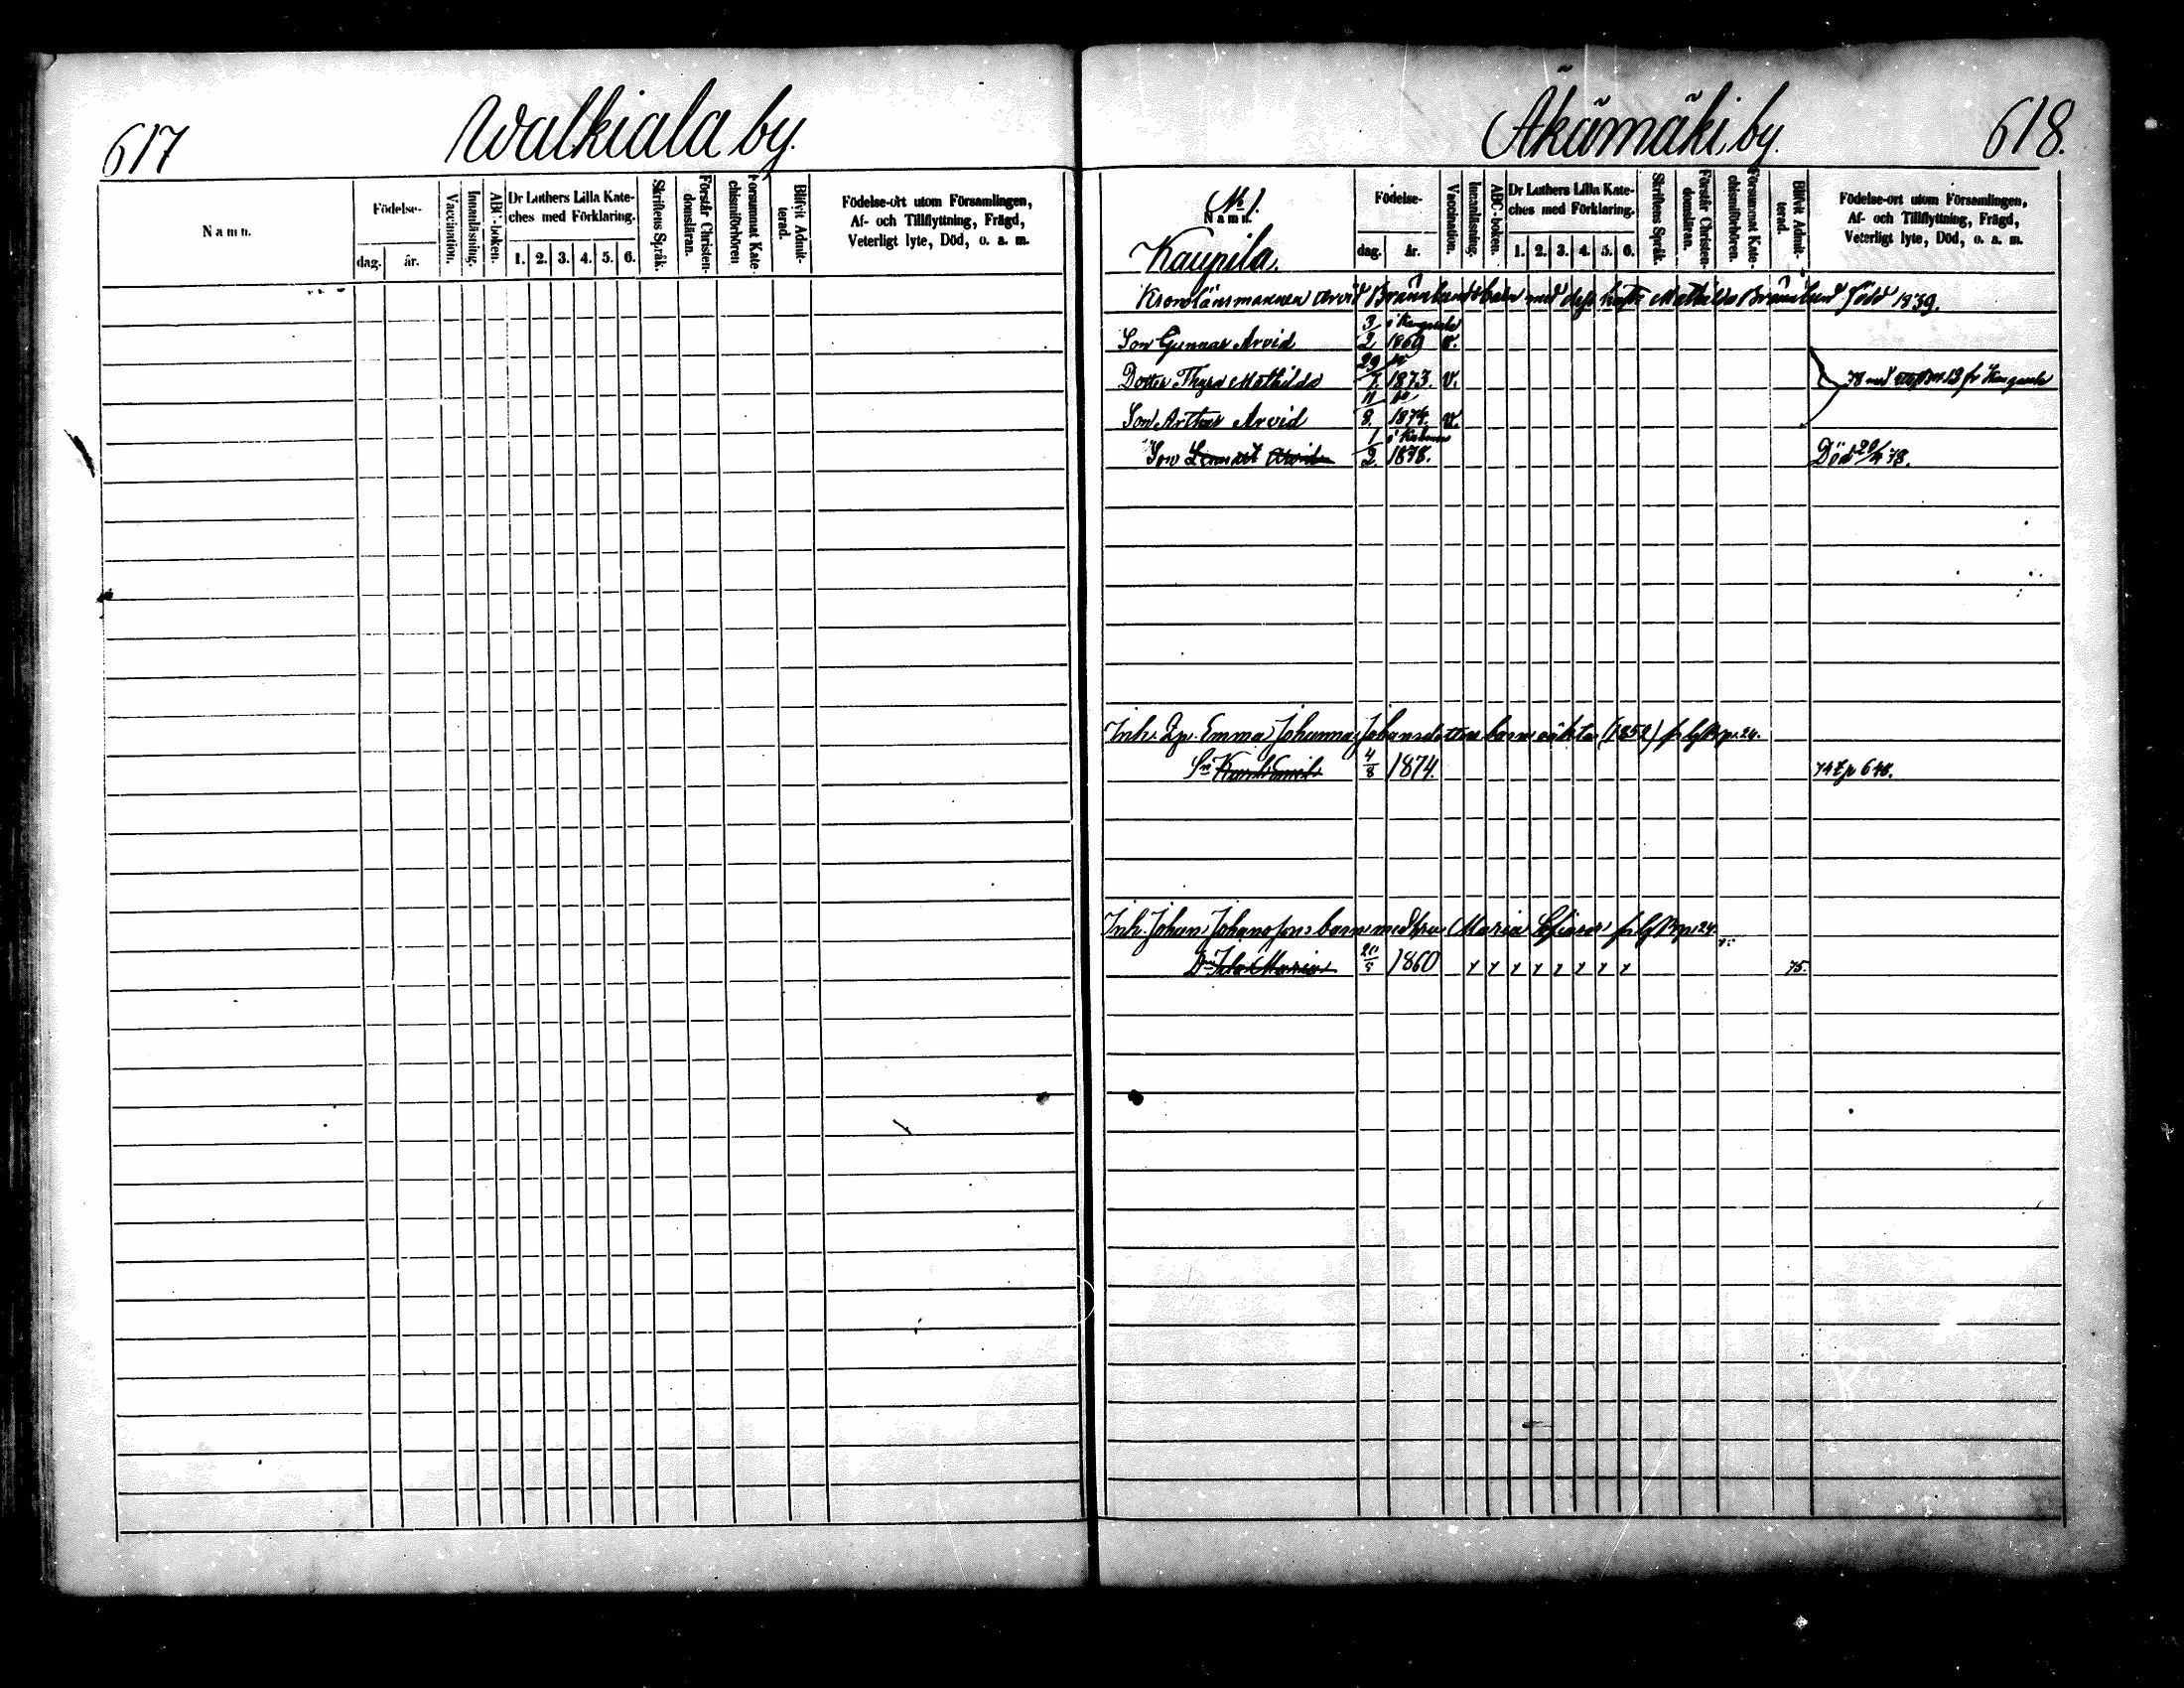 617
Walkiala by.
Namn.
Födelse-
dag.
år.
Vaccination.
Innanläsning.
ABC-boken.
Dr Luthers Lilla Kate-
ches med Förklaring.
1. 2. 3. 4. 5. 6.
Skriftens Språk.
Förstår Christen-
domsläran.
Försummat Kate-
chismiförhören
Blifvit Admit-
terad.
Födelse-ort utom Församlingen,
Af- och Tillflyttning, Frägd,
Veterligt lyte, Död, o. a. m.
Äkämäki by.
618.
№ 1.
Namn.
Kaupila.
Födelse-
dag.
år.
Vaccination.
Innanläsning.
ABC-boken.
Dr Luthers Lilla Kate-
ches med Förklaring.
1. 2. 3. 4. 5. 6.
Skriftens Språk.
Förstår Christen-
domsläran.
Försummat Kate-
chismiförhören.
Blifvit Admit-
terad.
Födelse-ort utom Församlingen,
Af- och Tillflyttning, Frägd,
Veterligt lyte, Död, o. a. m.
Kronolänsmannen Arvid barn med Mathilda född 1839.
Son Gunnar Arvid 3/2 1869 v.
Dotter Thyra Mathilda 29/7 1873. v. 78 med
Son Arthur Arvid 11/8 1874. v.
Son Lennart 1/2 1878. Död 78.
Inh. Emma Johanna Johansdotters barn (1852) p. 24.
Sn Karl Emil 4/8 1874. 74 t p 648.
Inh. Johan Johanssons barn med hu Maria p. 24.
Dr Ida Maria 1860 75.